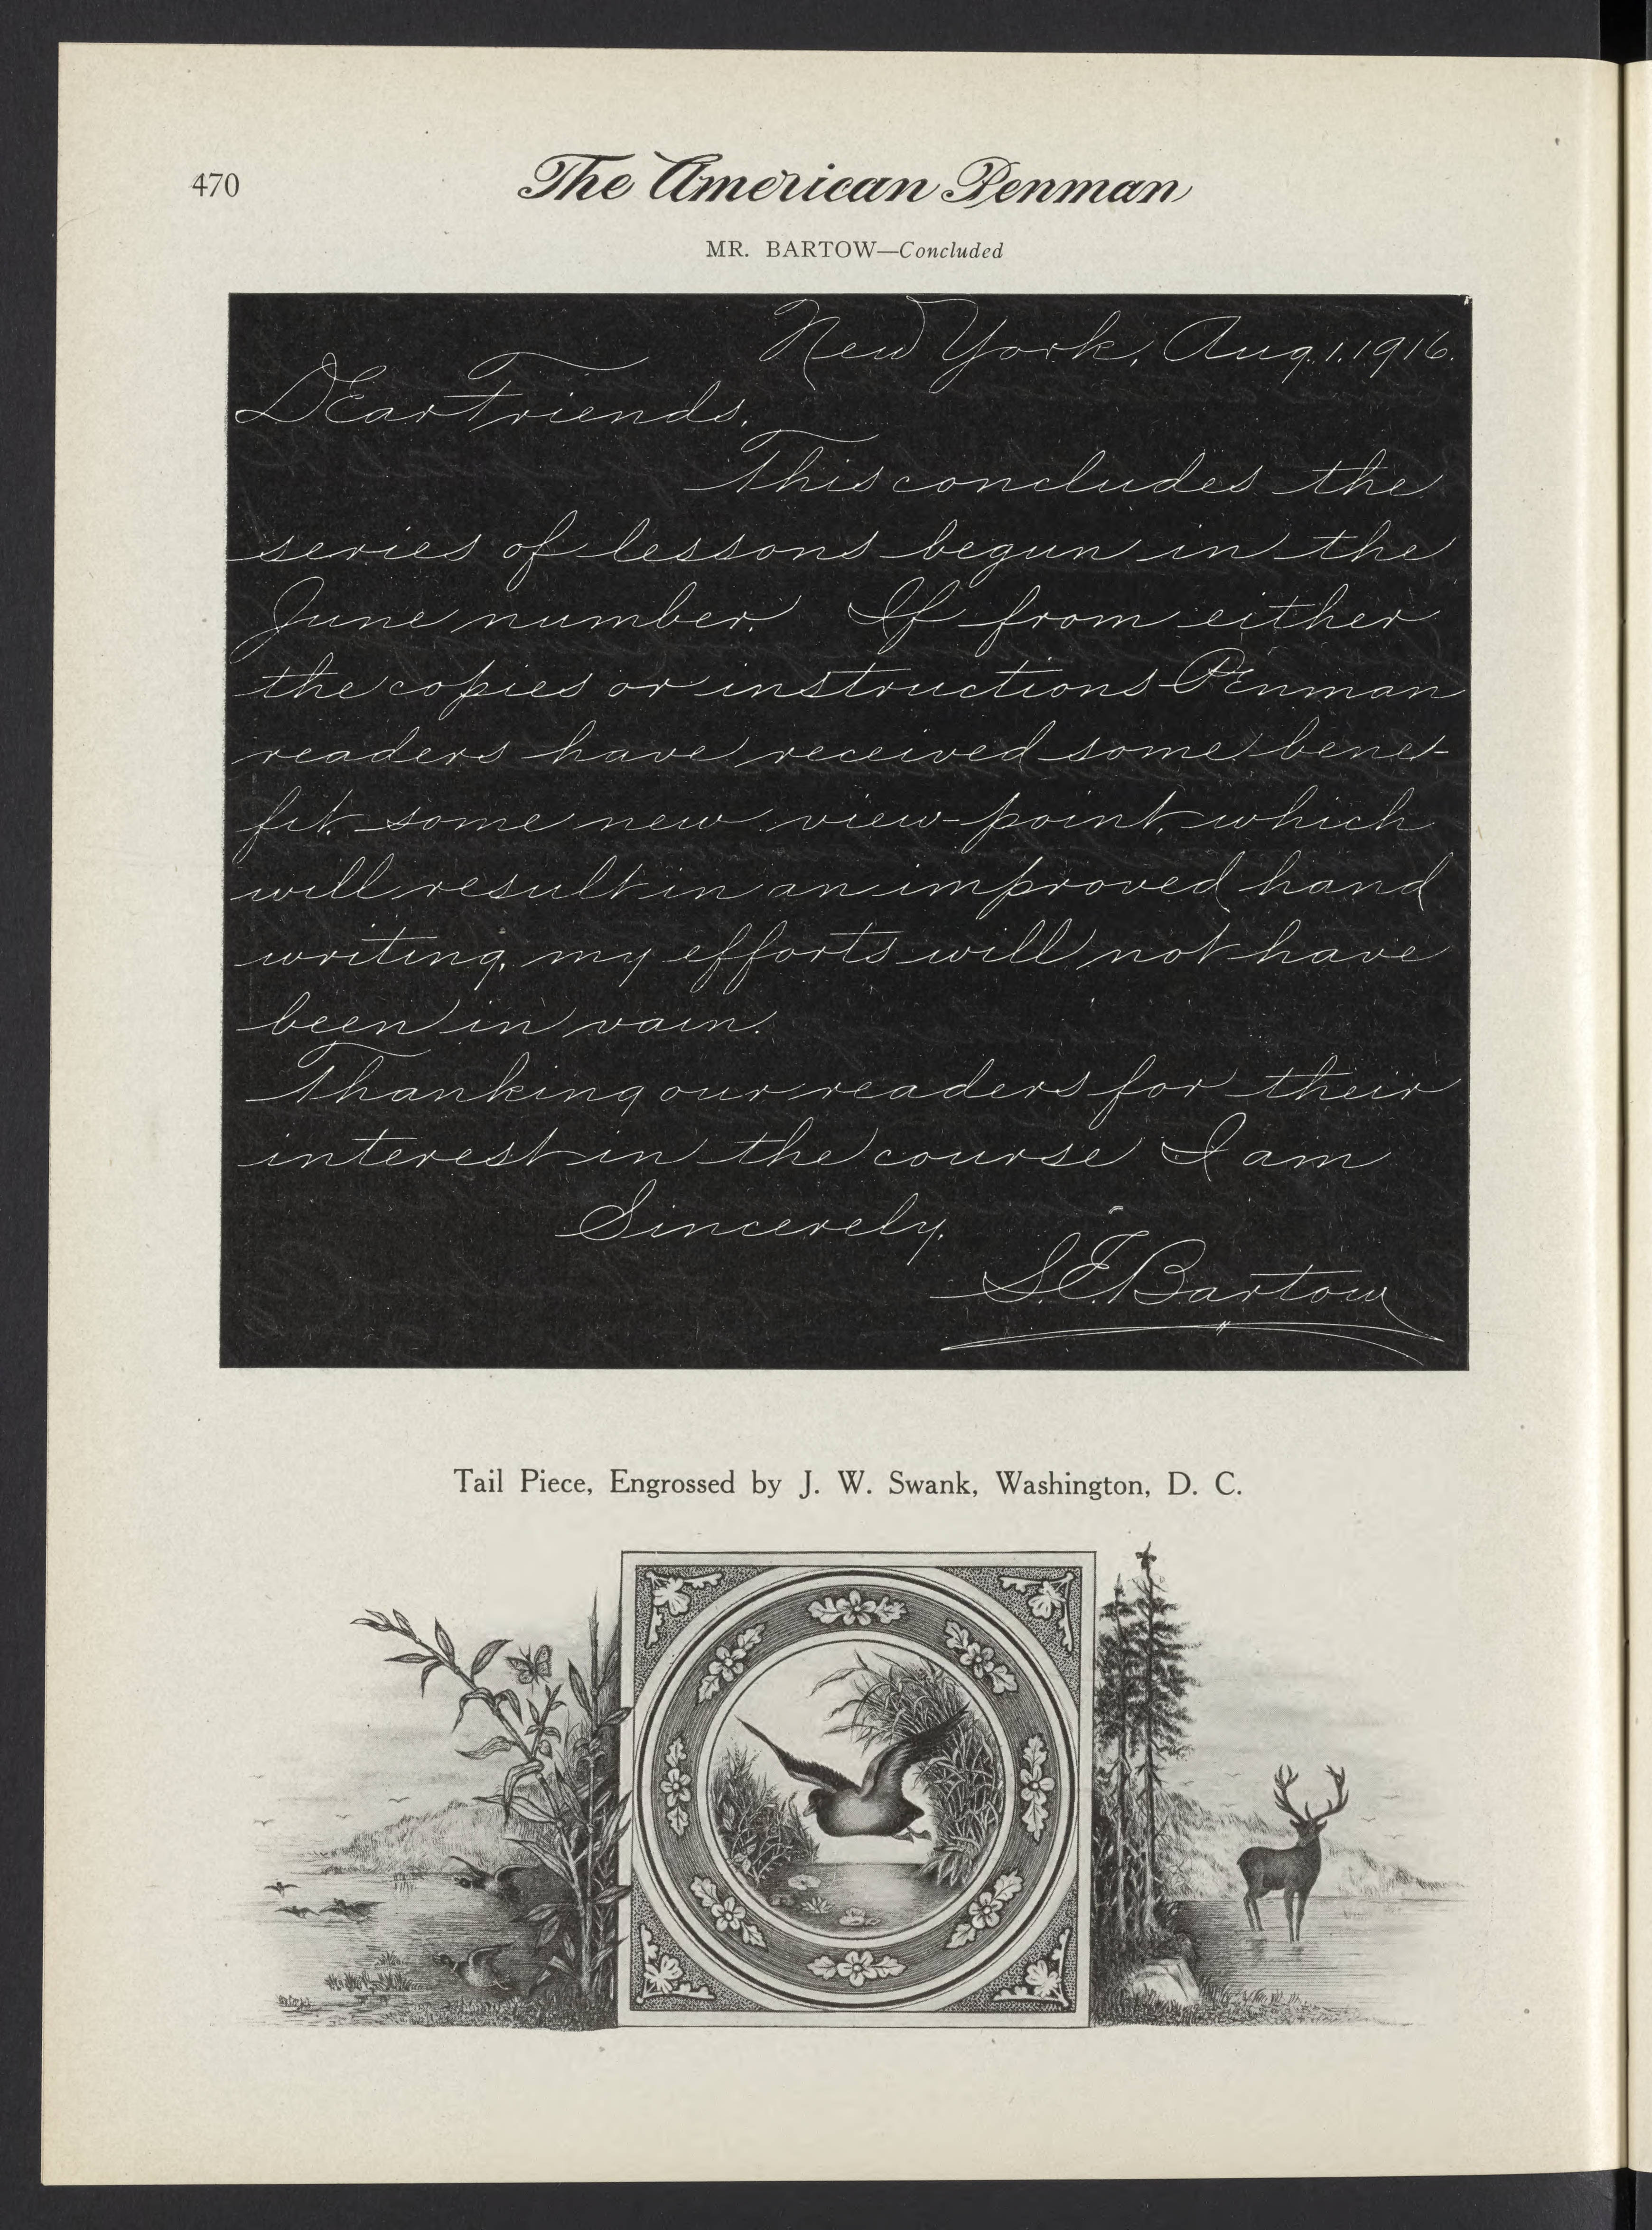 470
The American Penman
MR. BARTOW—Concluded
New York, Aug. 1, 1916.
Dear Friends,
This concludes the
series of lessons begun in the
June number. If from either
the copies or instructions Penman
readers have received some bene-
fit, some new view-point, which
will result in an improved hand
writing, my efforts will not have
been in vain.
Thanking our readers for their
interest in the course I am
Sincerely,
S. E. Bartow
Tail Piece, Engrossed by J. W. Swank, Washington, D. C.